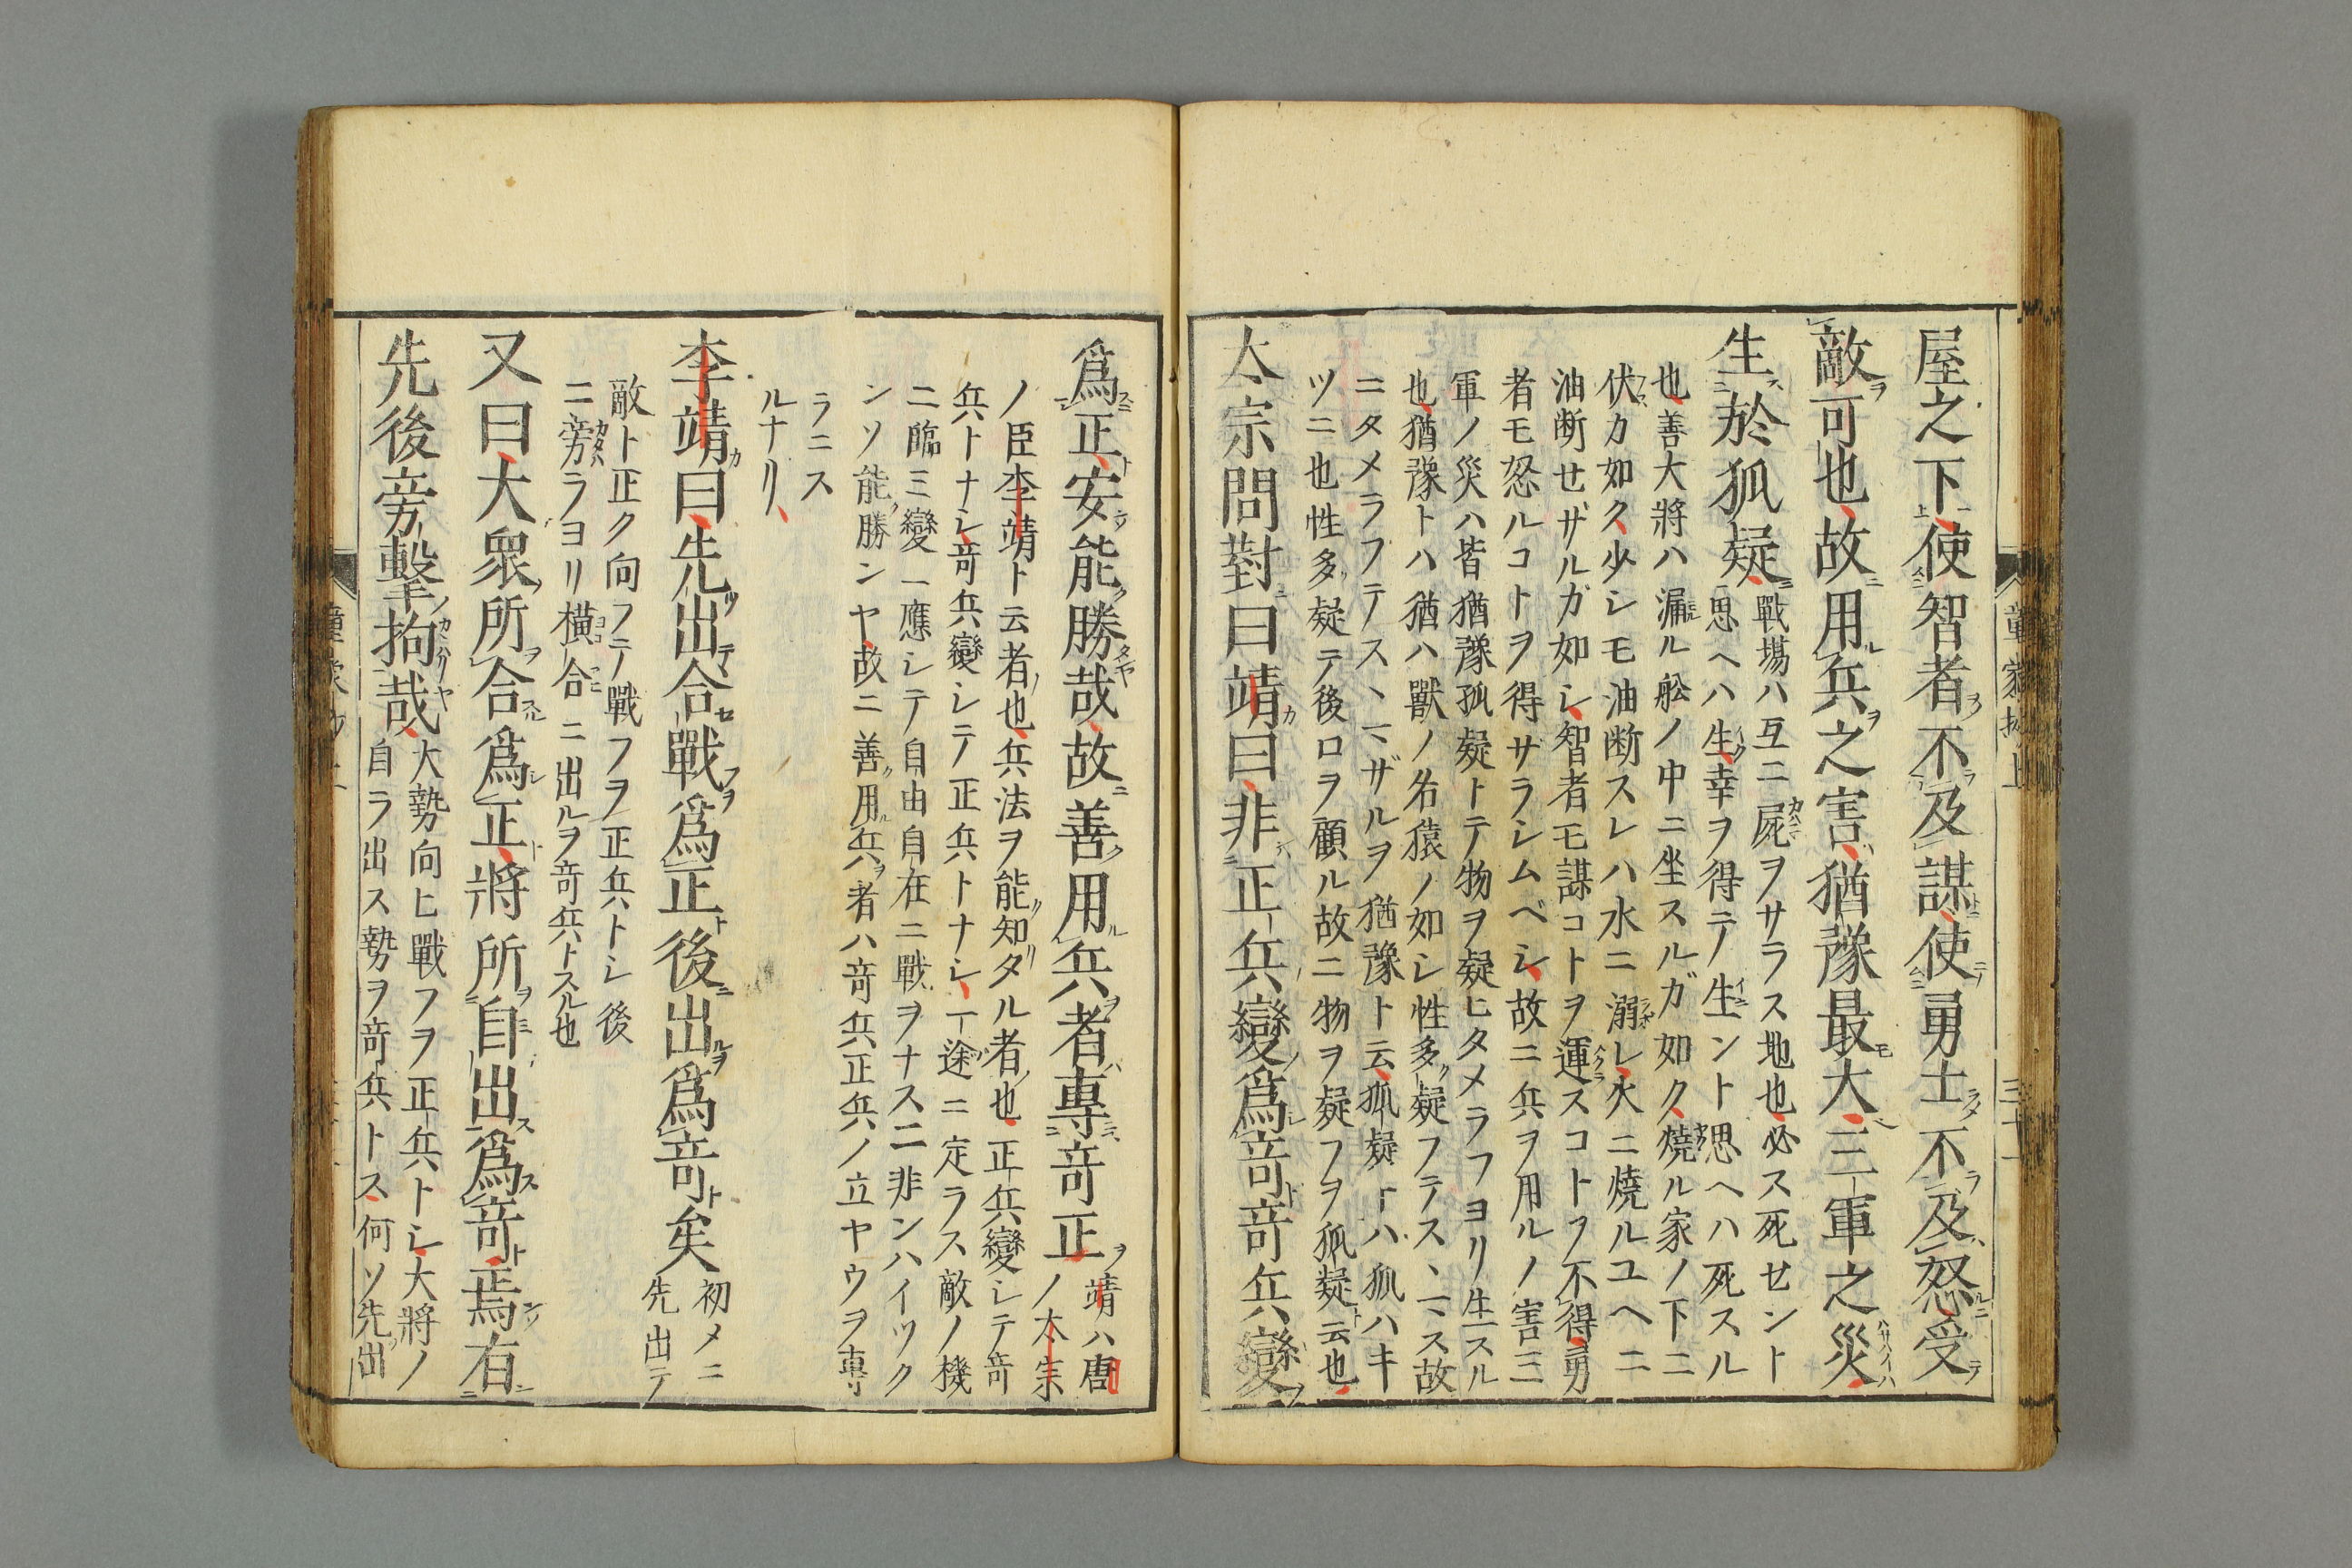 屋之下使智者不及謀使勇士不及怒受
敵可也故用兵之害猶豫最大三軍之災
生於狐疑
戰場ハ互ニ屍ヲサラス地也必ス死セント
思ヘハ生幸ヲ得テ生ント思ヘハ死スル
也善大將ハ漏ル舩ノ中ニ坐スルガ如ク燒ル家ノ下ニ
伏カ如ク少レモ油断スレハ水ニ溺レ火ニ燒ルユヘニ
油断せザルガ如レ智者モ謀コトヲ運スコトヲ不得勇
者モ怒ルコトヲ得ザラシムベシ故ニ兵ヲ用ルノ害三
軍ノ災ハ皆猶豫狐疑トテ物ヲ疑ヒタメラフヨリ生スル
也猶豫トハ猶ハ獸ノ名猿ノ如レ性多疑フテス、ニス故
ニタメラフテス、マザルヲ猶豫ト云狐疑トハ狐ハキ
ツニ也性多疑テ後ロヲ顧ル故ニ物ヲ疑フヲ狐疑云也
太宗問對曰靖曰非正兵變爲竒竒兵變
爲正安能勝哉故善用兵者專竒正
靖ハ唐
ノ太宗
ノ臣李靖ト云者也兵法ヲ能知タル者也正兵變レテ竒
兵トナレ竒兵變レテ正兵トナレ一途ニ定ラス敵ノ機
ニ臨ミ變一應レテ自由自在ニ戰ヲナスニ非ンハイツク
ンソ能勝ンヤ故ニ善用兵者ハ竒兵正兵ノ立ヤウヲ專
ラニス
ルナリ
李靖曰先出合戰爲正後出爲竒矣
初メニ
先出テ
敵ト正ク向フテ戰フヲ正兵トレ後
ニ旁ラヨリ横合ニ出ルヲ竒兵トスル也
又曰大衆所合爲正將所自出爲竒焉有
先後旁擊拘哉
大勢向ヒ戰フヲ正兵トレ大將ノ
自ラ出ス勢ヲ竒兵トス何ソ先出
童蒙抄上
三十一